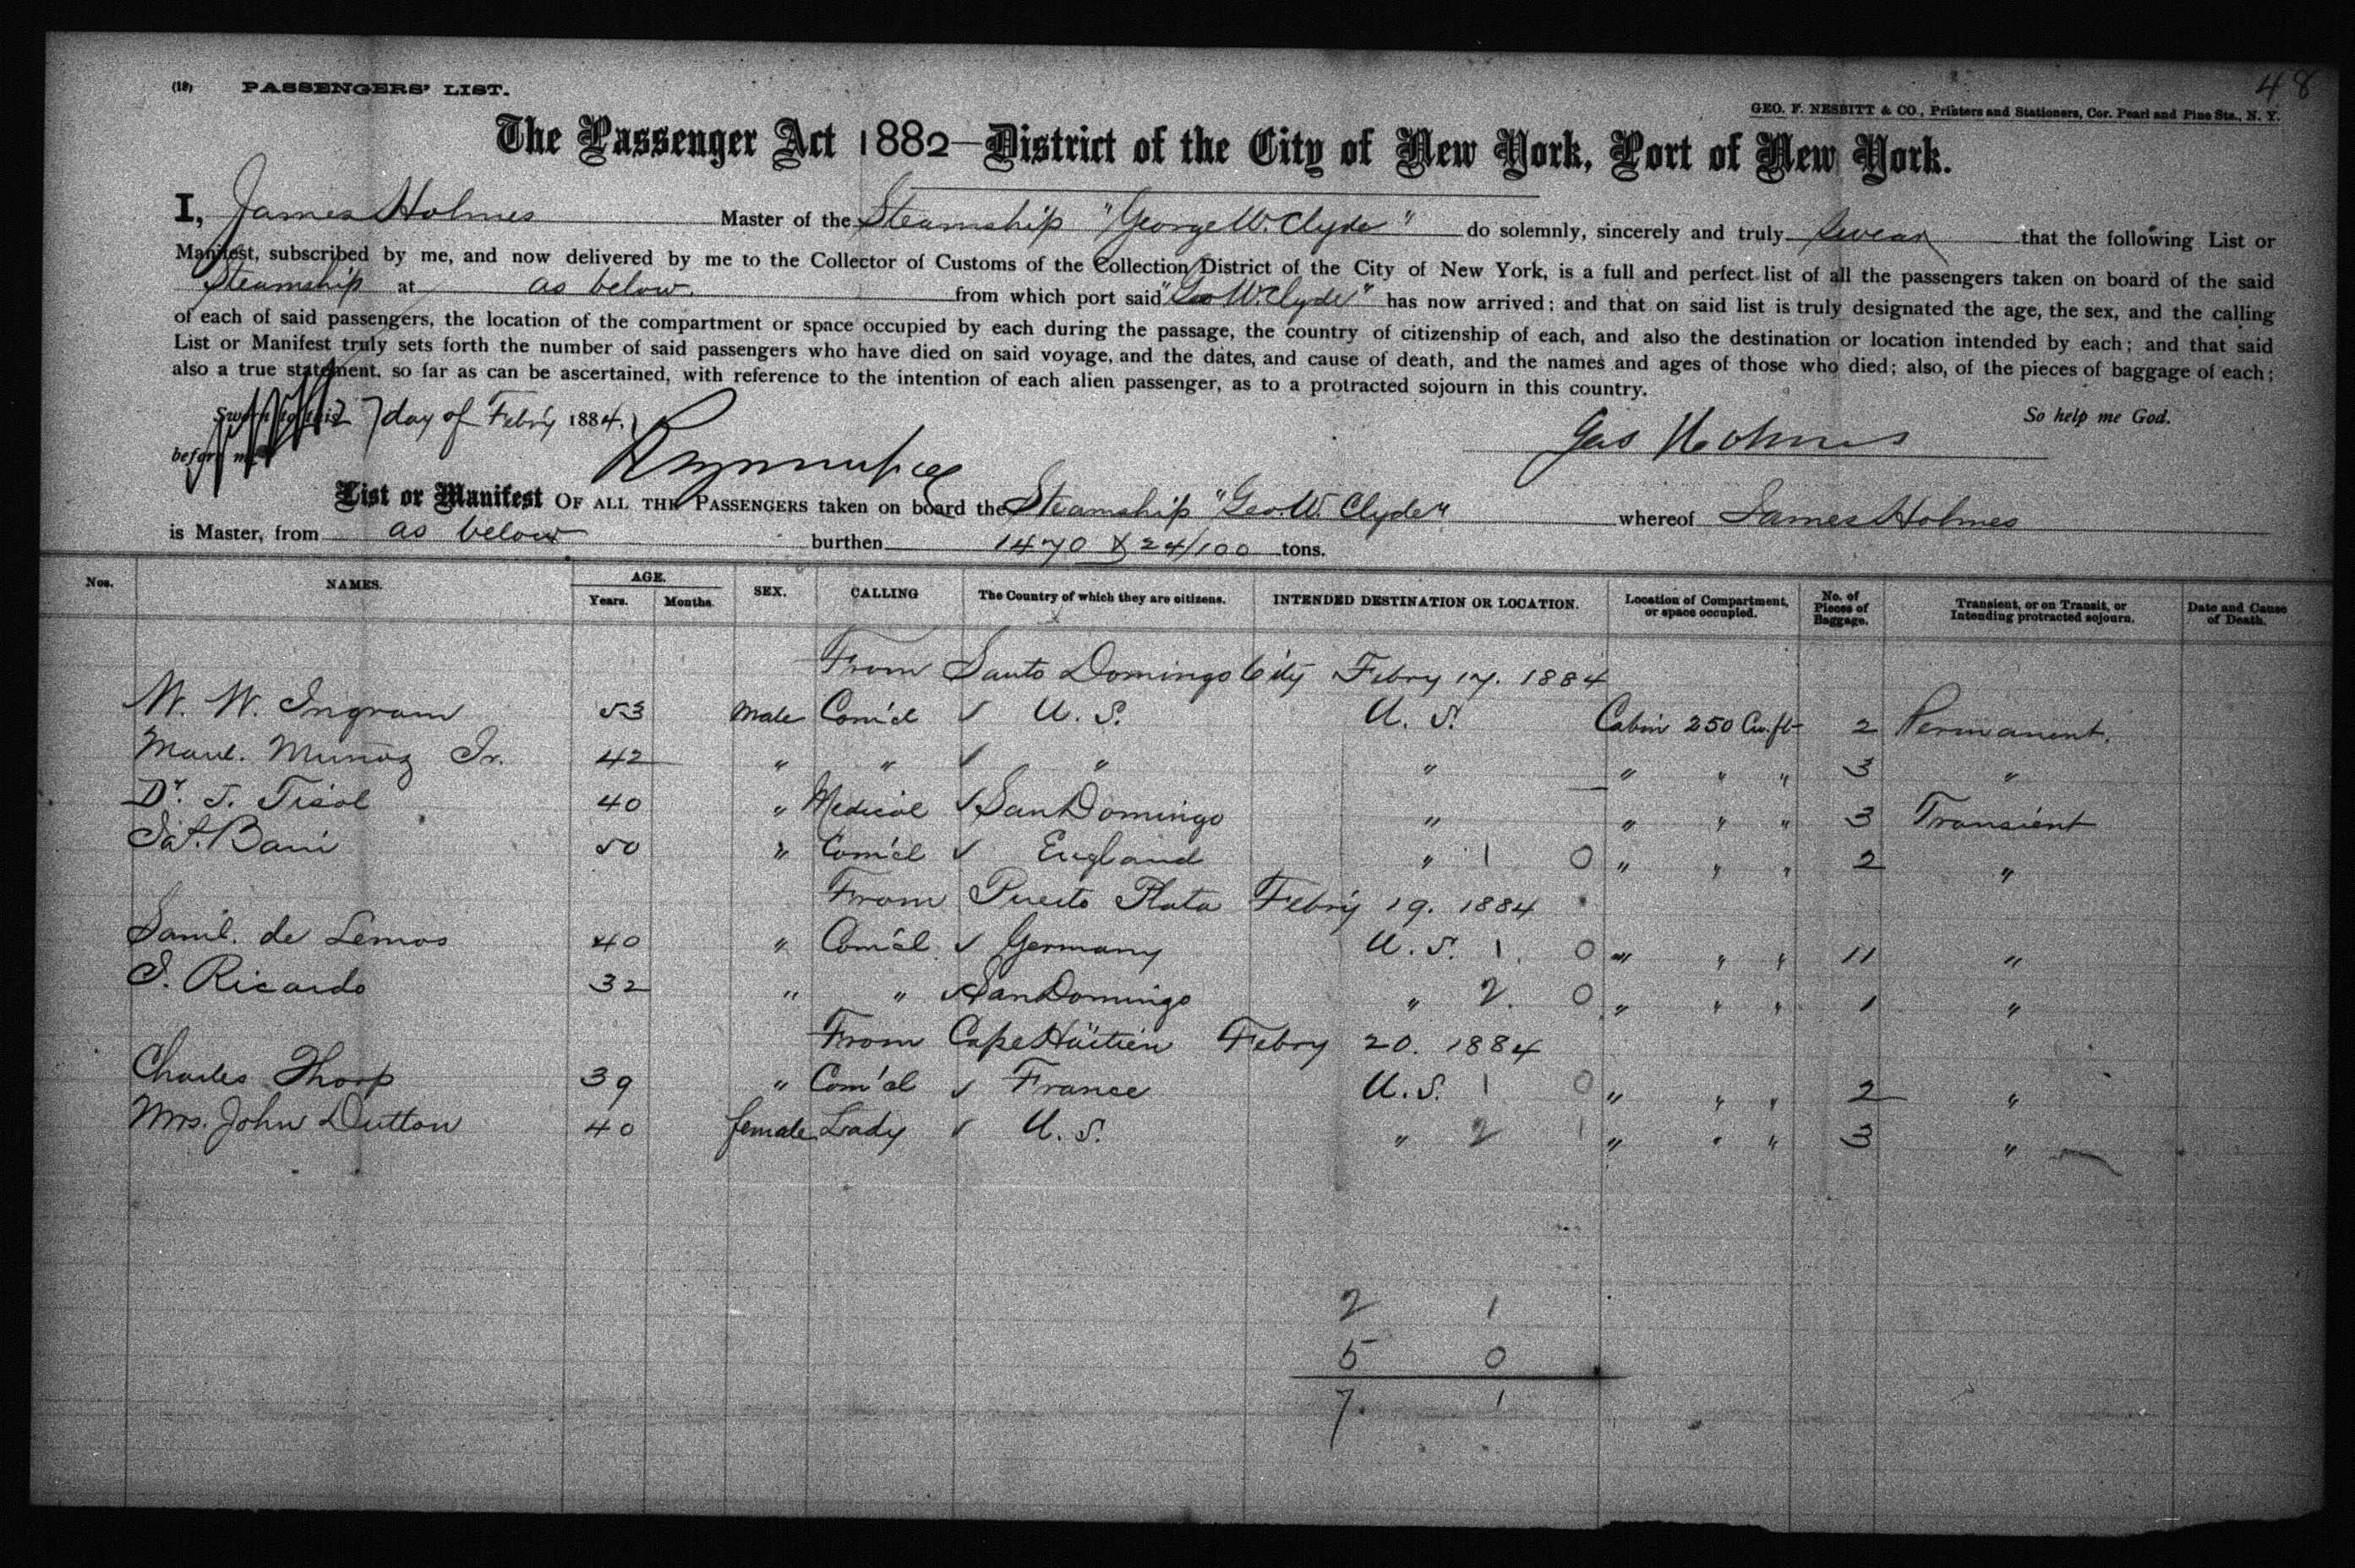 48
(18) PASSENGERS' LIST.
GEO. F. NESBITT & CO., Printers and Stationers, Cor. Pearl and Pine Sts., N. Y.
The Passenger Act 1882—District of the City of New York, Port of New York.
I, James Holmes Master of the Steamship "George W. Clyde" do solemnly, sincerely and truly swear that the following List or
Manifest, subscribed by me, and now delivered by me to the Collector of Customs of the Collection District of the City of New York, is a full and perfect list of all the passengers taken on board of the said
Steamship at as below. from which port said "Geo W. Clyde" has now arrived; and that on said list is truly designated the age, the sex, and the calling
of each of said passengers, the location of the compartment or space occupied by each during the passage, the country of citizenship of each, and also the destination or location intended by each; and that said
List or Manifest truly sets forth the number of said passengers who have died on said voyage, and the dates, and cause of death, and the names and ages of those who died; also, of the pieces of baggage of each;
also a true statement, so far as can be ascertained, with reference to the intention of each alien passenger, as to a protracted sojourn in this country.
Sworn to this 27 day of Feb'y 1884, So help me God.
before me Jas Holmes
List or Manifest OF ALL THE PASSENGERS taken on board the Steamship "Geo. W. Clyde" whereof James Holmes
is Master, from as below burthen 1470 & 24/100 tons.
Nos. NAMES. AGE. Years. Months. SEX. CALLING The Country of which they are citizens. INTENDED DESTINATION OR LOCATION. Location of Compartment, or space occupied. No. of Pieces of Baggage. Transient, or on Transit, or Intending protracted sojourn. Date and Cause of Death.
From Santo Domingo City Febry 17. 1884
W. W. Ingram 53 Male Com'cl ✓ U. S. U. S. Cabin 250 Cu. ft 2 Permanent.
Manl. Munoz Jr. 42 " " ✓ " " " " " 3 "
Dr. J. Tisol 40 " Medical ✓ San Domingo " " " " 3 Transient
50 " Com'cl ✓ England " 1 0 " " " 2 "
From Puerto Plata Feb'ry 19. 1884
Saml. de Lemos 40 " Com'cl ✓ Germany U. S. 1. 0 " " " 11 "
I. Ricardo 32 " " ✓ San Domingo " 2. 0 " " " 1 "
From Cape Haïtien Febry 20. 1884
Charles Thorp 39 " Com'cl ✓ France U. S. 1 0 " " " 2 "
Mrs. John Dutton 40 female Lady ✓ U. S. " 2 1 " " " 3 "
2 1
5 0
7 1